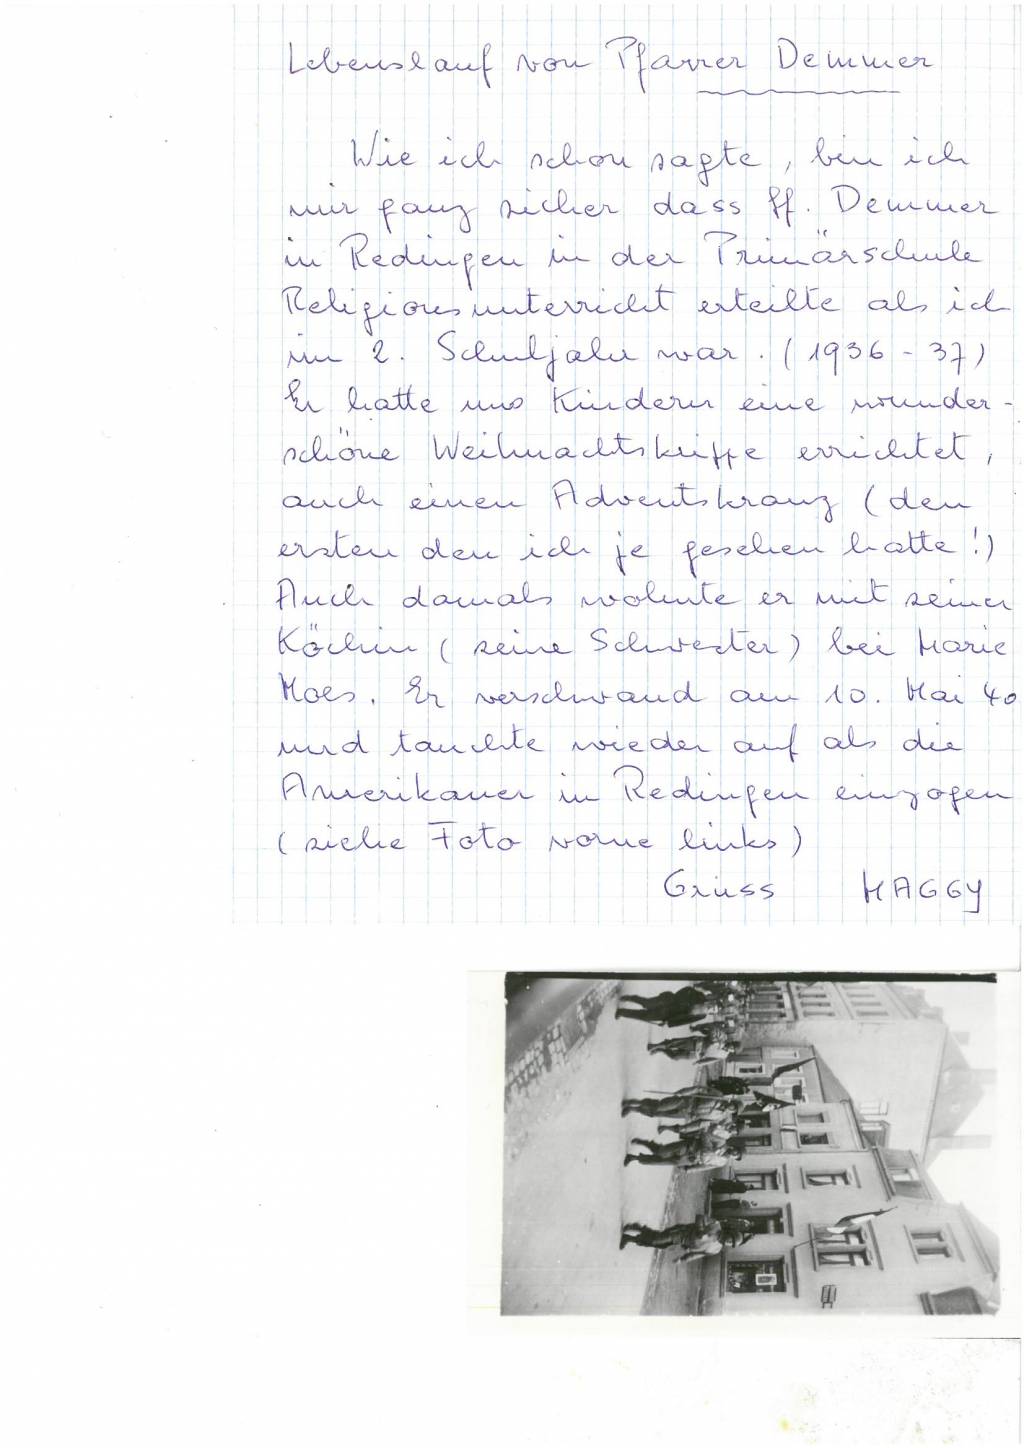 Lebenslauf von Pfarrer Demmer
Wie ich schon sagte, bin ich
mir ganz sicher dass Hf. Demmer
in Redingen in der Primärschule
Religionsunterricht erteilte als ich
im 2. Schuljahr war. (1936 - 37)
Er hatte uns Kindern eine wunder-
schöne Weihnachtskrippe errichtet,
auch einen Adventskranz (den
ersten den ich je gesehen hatte!)
Auch damals wohnte er mit seiner
Köchin (seine Schwester) bei Marie
Moes. Er verschwand am 10. Mai 40
und tauchte wieder auf als die
Amerikaner in Redingen einzogen
(siehe Foto vorne links)
Grüss MAGGY